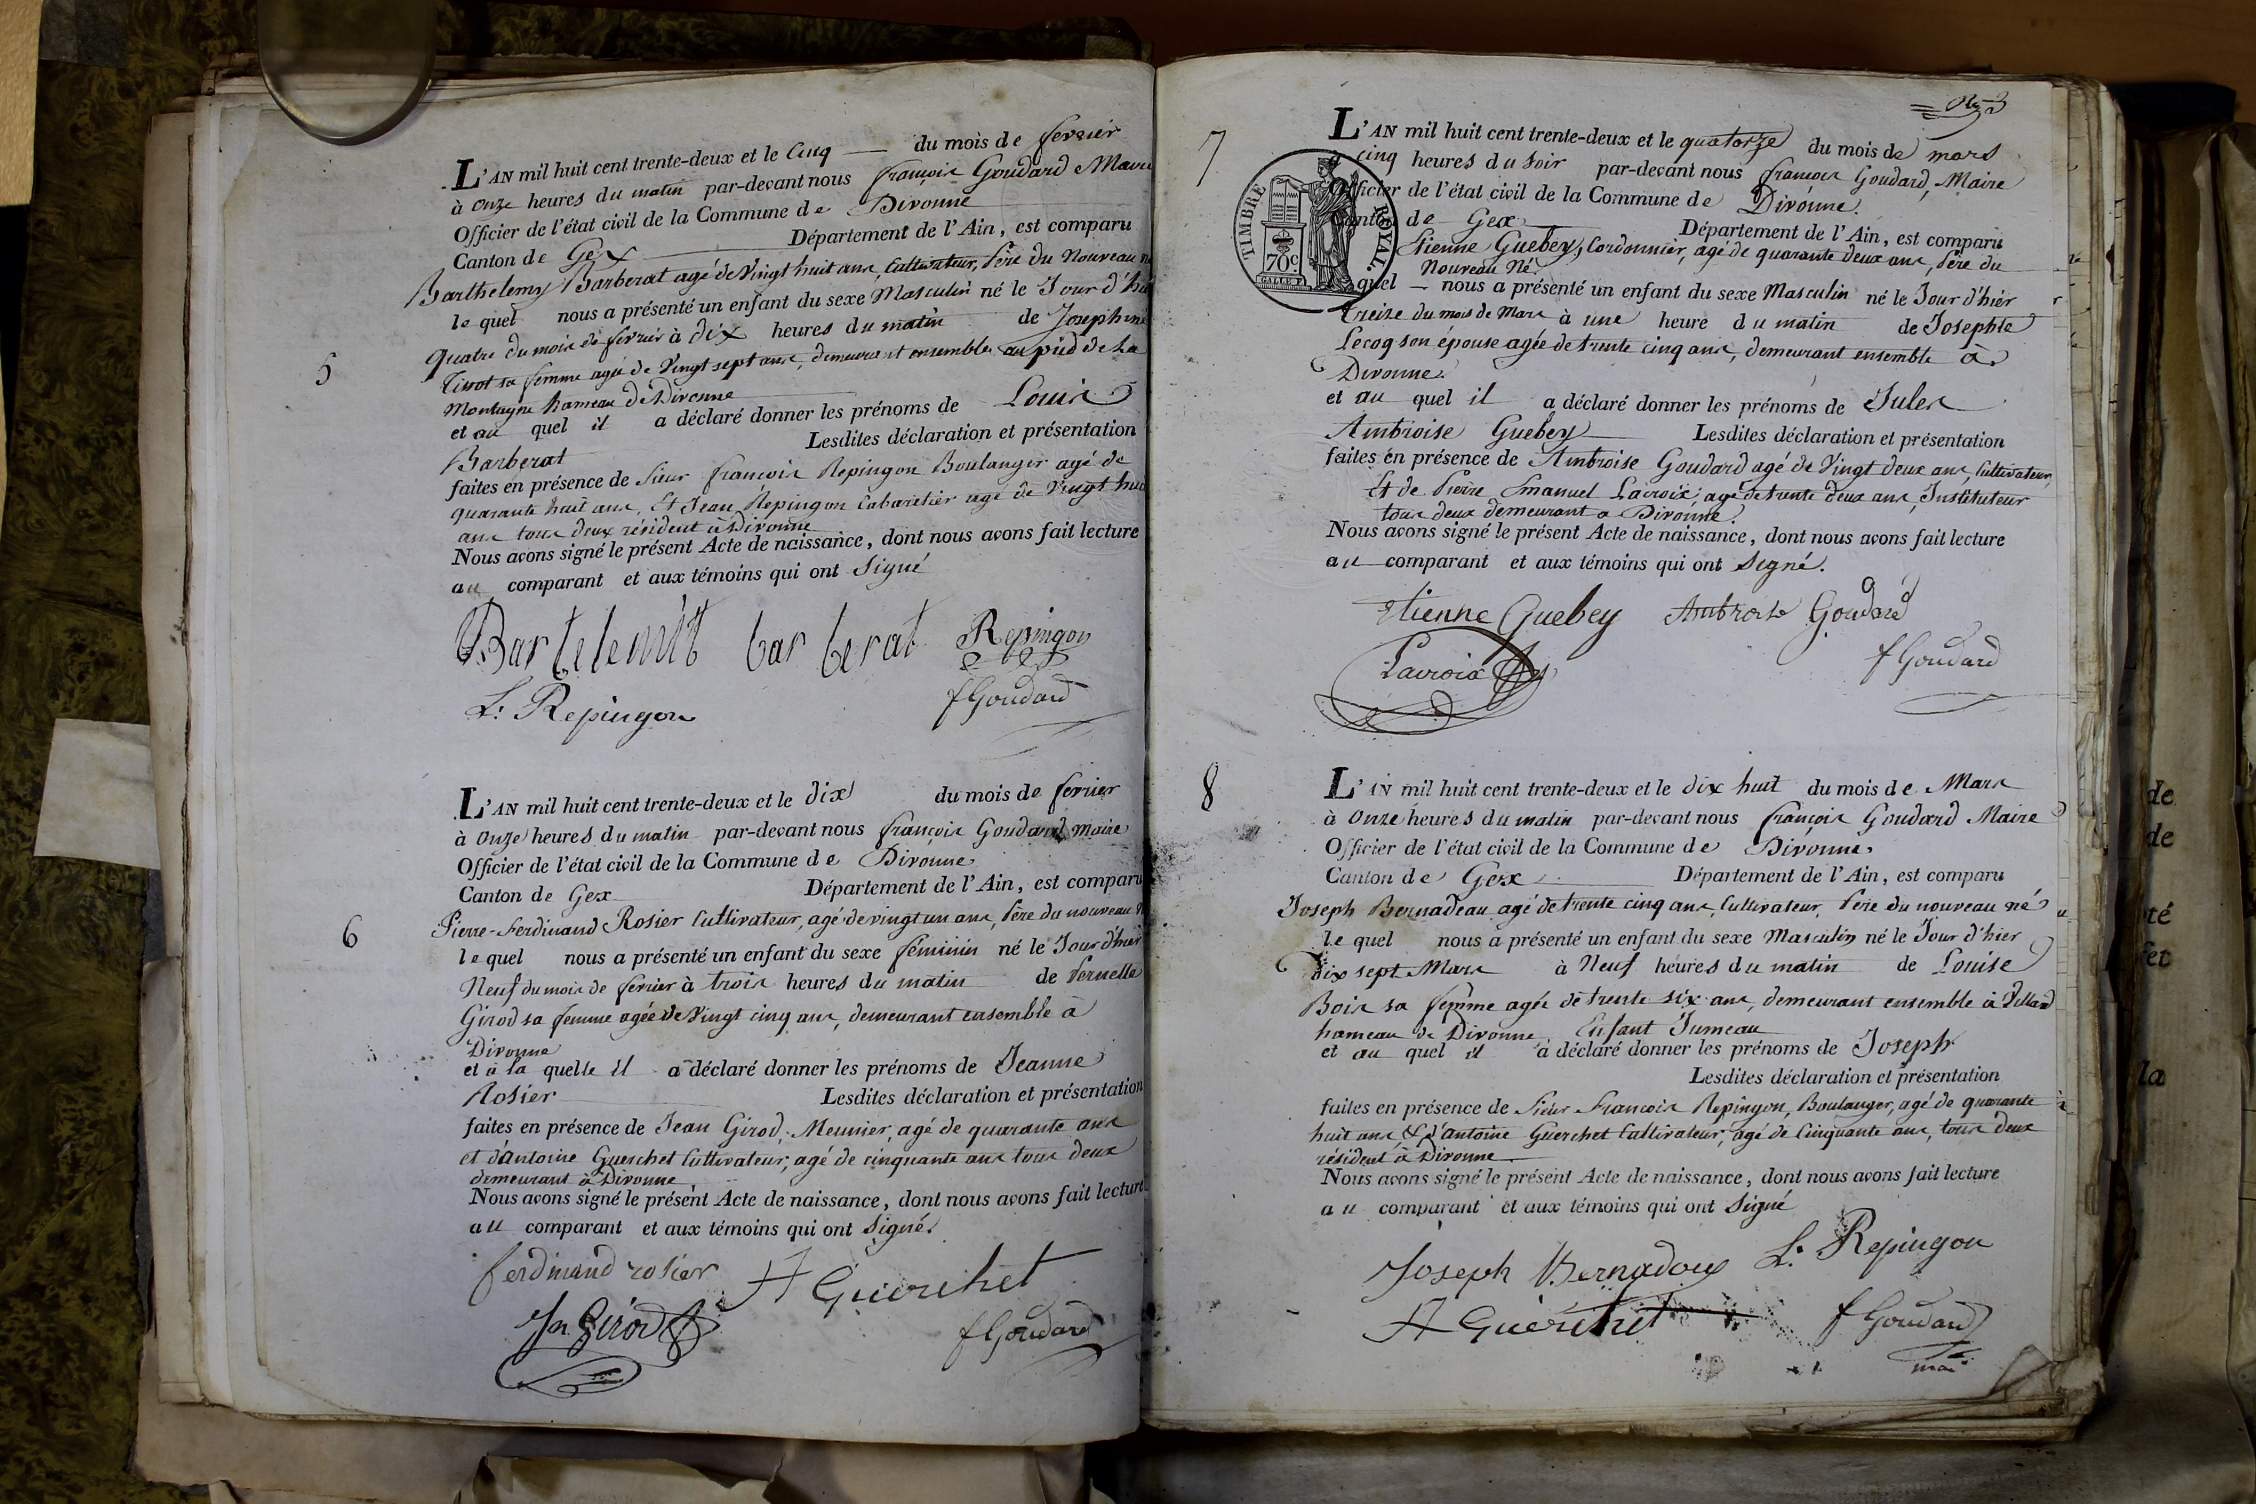 L'AN mil huit cent trente-deux et le Cinq du mois de fevrier
à onze heures du matin par-devant nous françois Goudard Maire
Officier de l'état civil de la Commune de Divonne
Canton de Gex Département de l'Ain, est comparu
Barthelemy Barberat agé de Vingt huit ans, Cultivateur, Père du Nouveau n
5
le quel nous a présenté un enfant du sexe Masculin né le Jour d'hi
quatre du mois de fevrier à dix heures du matin de Josephine
Tissot sa femme agée de Vingt sept ans, demeurant ensemble au pied de la
Montagne hameau de Divonne
et au quel il a déclaré donner les prénoms de Louis
Barberat Lesdites déclaration et présentation
faites en présence de Sieur françois Repingon Boulanger agé de
quarante huit ans, Et Jean Repingon Cabaretier agé de Vingt hui
ans tous deux résident à Divonne
Nous avons signé le présent Acte de naissance, dont nous avons fait lecture
au comparant et aux témoins qui ont Signé
Bartelemit barberat Repingon
L: Repingon fGoudard
L'AN mil huit cent trente-deux et le dix du mois de fevrier
à Onze heures du matin par-devant nous françois Goudard maire
Officier de l'état civil de la Commune de Divonne
Canton de Gex Département de l'Ain, est comparu
6
Pierre-Ferdinand Rosier Cultivateur, agé de vingt un ans, Père du nouveau n
le quel nous a présenté un enfant du sexe féminin né le Jour d'hier
Neuf du mois de fevrier à trois heures du matin de Pernelle
Girod sa femme agée de Vingt cinq ans, demeurant ensemble à
Divonne
et à la quelle il a déclaré donner les prénoms de Jeanne
Rosier Lesdites déclaration et présentation
faites en présence de Jean Girod, Meunier, agé de quarante ans
et d'Antoine Guerchet Cultivateur, agé de cinquante ans tous deux
demeurant à Divonne
Nous avons signé le présent Acte de naissance, dont nous avons fait lecture
au comparant et aux témoins qui ont Signé.
ferdinand rosier A Guerchet
Jn Girod fGoudard
7
L'AN mil huit cent trente-deux et le quatorze du mois de mars
à cinq heures du soir par-devant nous françois Goudard, Maire
Officier de l'état civil de la Commune de Divonne.
Canton de Gex Département de l'Ain, est comparu
TIMBRE ROYAL.
70c
Etienne Guebey, Cordonnier, agé de quarante deux ans, Père du
Nouveau Né
quel nous a présenté un enfant du sexe Masculin né le Jour d'hier
treize du mois de Mars à une heure du matin de Josephte
Lecoq son épouse agée de trente cinq ans, demeurant ensemble à
Divonne.
et au quel il a déclaré donner les prénoms de Jules
Ambroise Guebey Lesdites déclaration et présentation
faites en présence de Ambroise Goudard agé de Vingt deux ans, Cultivateur,
Et de Pierre Emanuel Lacroix, agé de trente deux ans, Instituteur
tous deux demeurant à Divonne.
Nous avons signé le présent Acte de naissance, dont nous avons fait lecture
au comparant et aux témoins qui ont Signé.
Etienne Guebey Ambroise Goudard
Lacroix fGoudard
8
L'AN mil huit cent trente-deux et le dix huit du mois de Mars
à Onze heures du matin par-devant nous françois Goudard Maire
Officier de l'état civil de la Commune de Divonne.
Canton de Gex Département de l'Ain, est comparu
Joseph Bernadeau agé de trente cinq ans, Cultivateur, Père du nouveau né
le quel nous a présenté un enfant du sexe Masculin né le Jour d'hier
dix sept Mars à Neuf heures du matin de Louise
Bois sa femme agée de trente six ans, demeurant ensemble à Villard
hameau de Divonne, Enfant Jumeau
et au quel il a déclaré donner les prénoms de Joseph
Lesdites déclaration et présentation
faites en présence de Sieur Francois Repingon, Boulanger, agé de quarante
huit ans, & d'antoine Guerchet Cultivateur, agé de Cinquante ans, tous deux
résident à Divonne
Nous avons signé le présent Acte de naissance, dont nous avons fait lecture
au comparant et aux témoins qui ont Signé
Joseph Bernadoux L: Repingon
A Guerchet fGoudard
de
de
té
fet
la